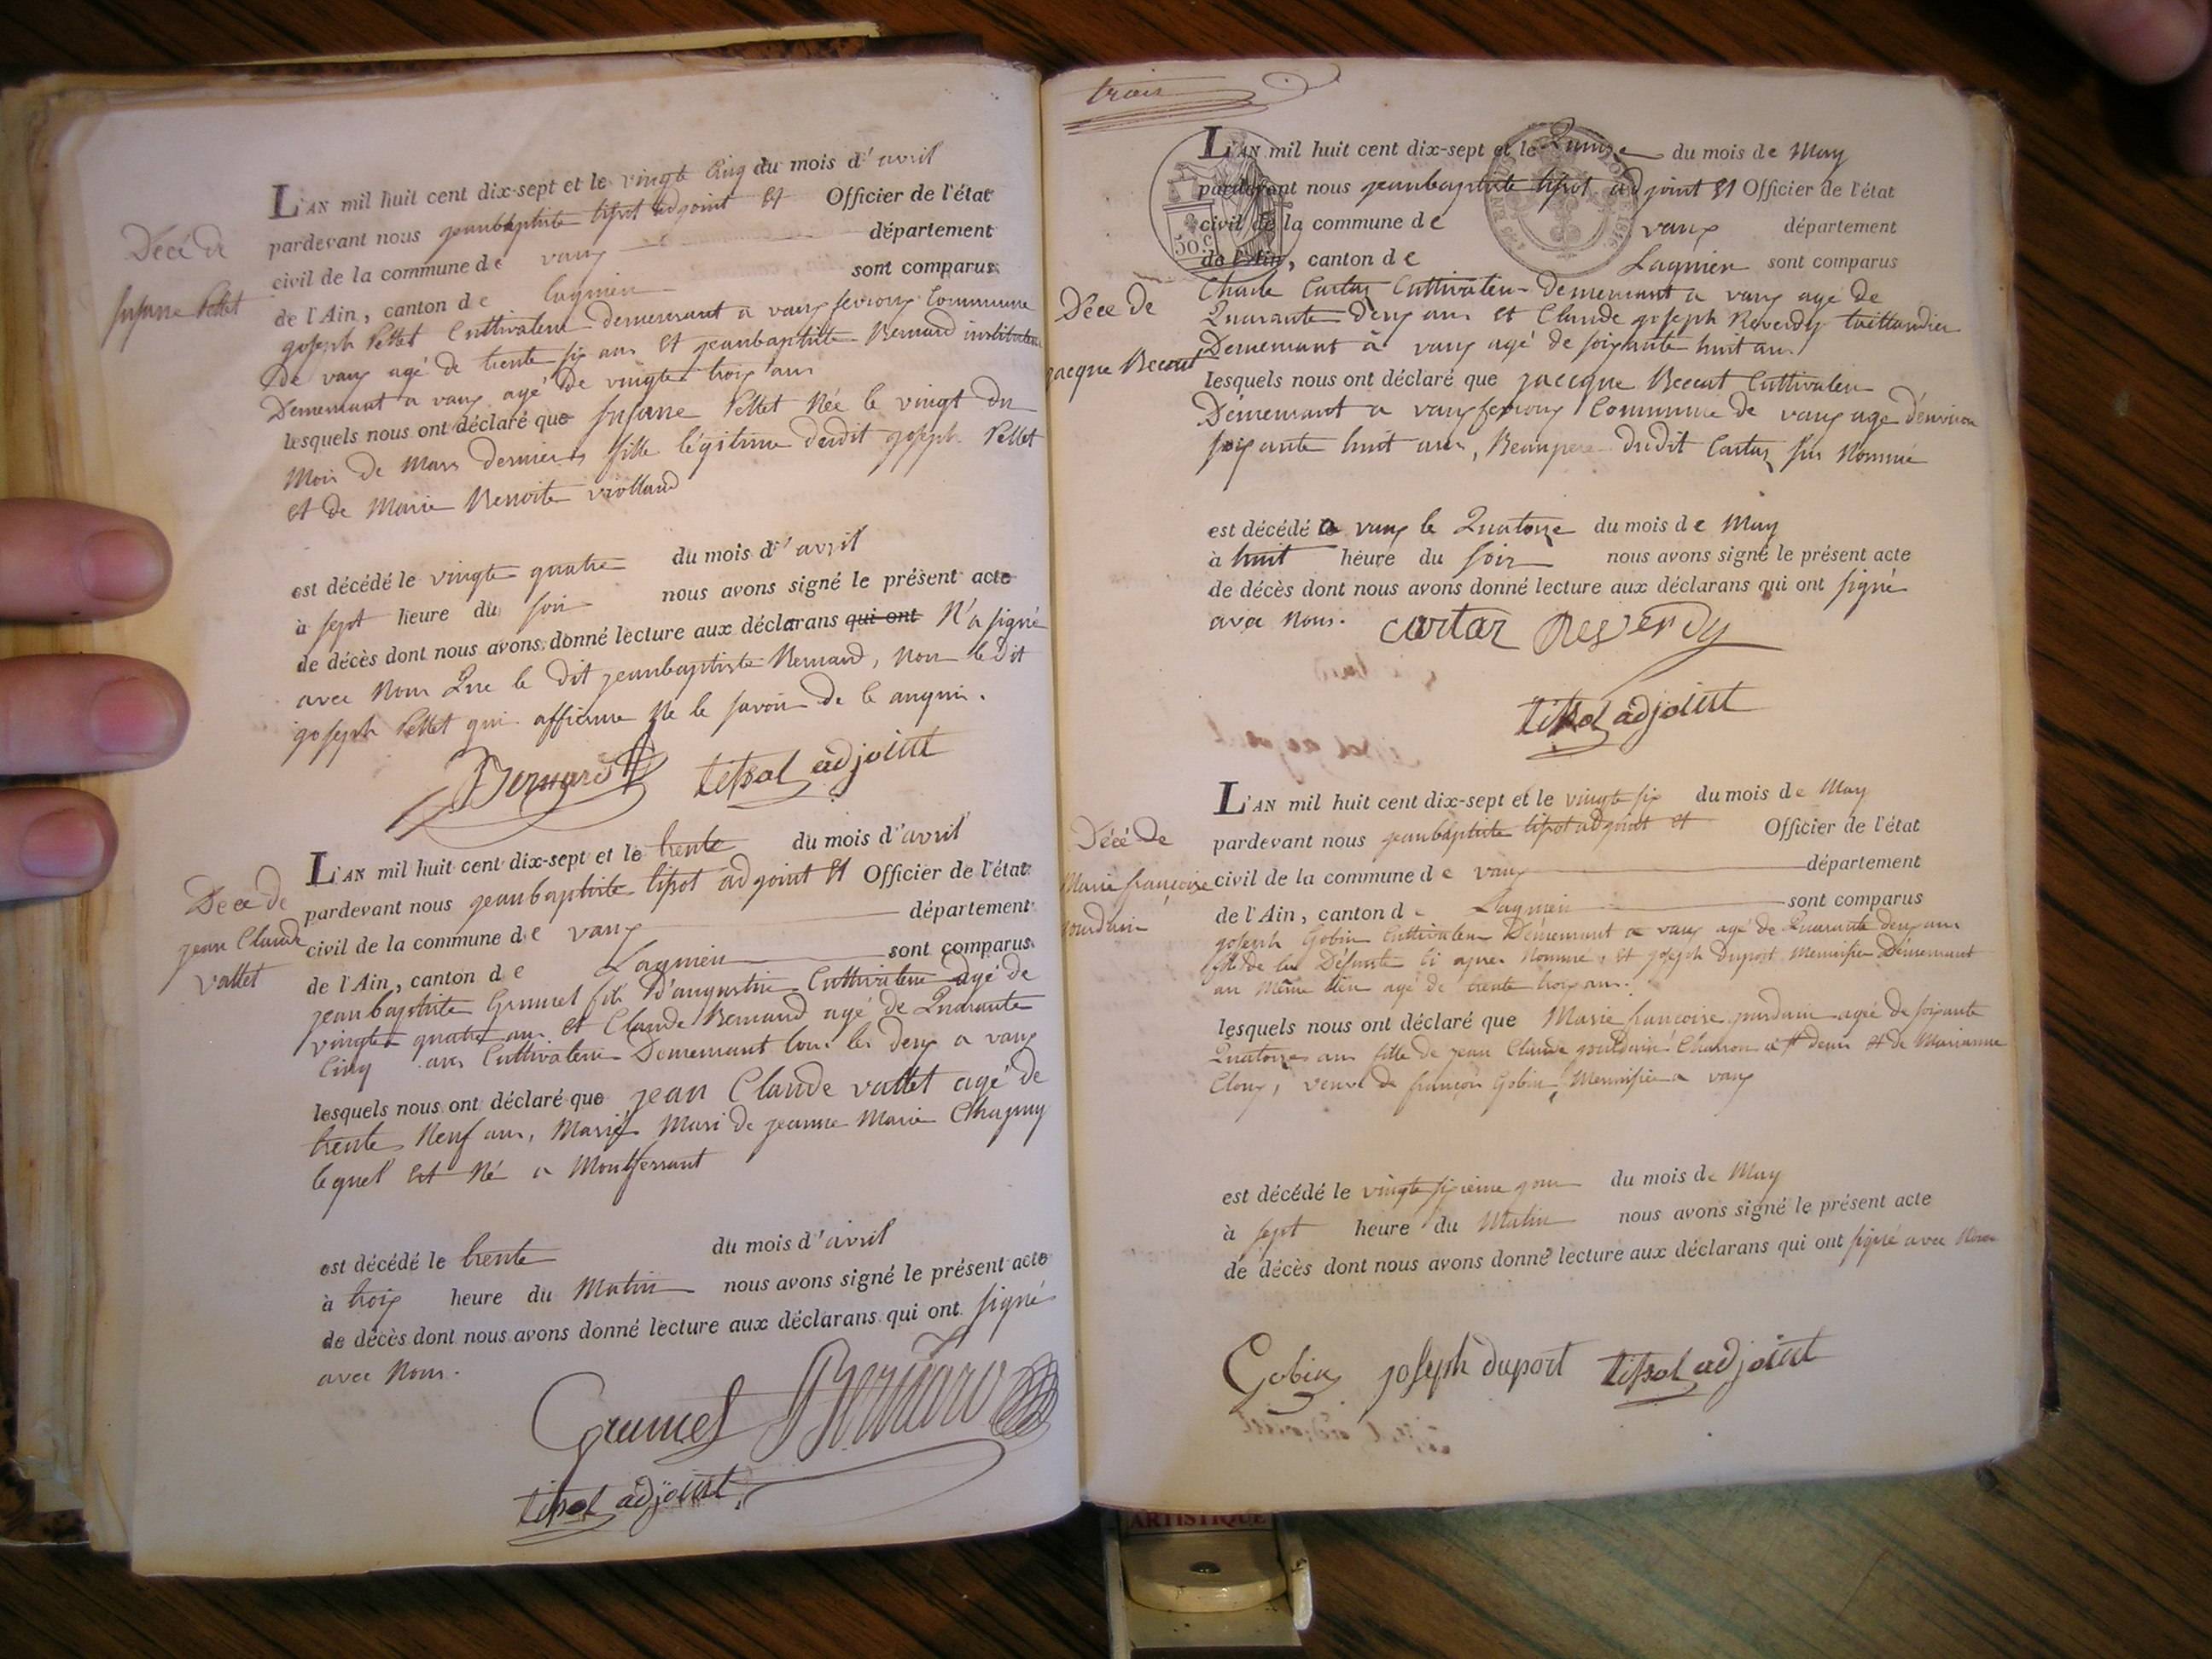 Décé de
Susanne Pettet
L'AN mil huit cent dix-sept et le vingt Cinq du mois d'avril
pardevant nous jeanbaptiste tissot adjoint et Officier de l'état
civil de la commune de vaux département
de l'Ain, canton de Lagnieu sont comparus
joseph Pettet Cultivateur demeurant a vaux fevroux Commune
De vaux agé de trente six ans et jeanbaptiste Bernard instituteur
Demeurant a vaux agé De vingte trois ans
lesquels nous ont déclaré que Susanne Pettet Née le vingt du
Mois de Mars dernier fille légitime dudit joseph Pettet
et de Marie Benoite
est décédé le vingte quatre du mois d'avril
à sept heure du soir nous avons signé le présent acte
de décès dont nous avons donné lecture aux déclarans qui ont N'a signé
avec Nous Que le dit jeanbaptiste Bernard, Non le dit
joseph Pettet qui affirme Ne le savoir de ce
Bernard tissot adjoint
Décé de
jean Claude
vallet
L'AN mil huit cent dix-sept et le trente du mois d'avril
pardevant nous jeanbaptiste tissot adjoint et Officier de l'état
civil de la commune de vaux département
de l'Ain, canton de Lagnieu sont comparus
jeanbaptiste Grumel fils d'augustin Cultivateur agé de
vingte quatre ans et Claude Bernard agé de Quarante
Cinq ans Cultivateur Demeurant tous les deux a vaux
lesquels nous ont déclaré que jean Claude vallet agé de
trente Neuf ans, Marié Mari de jeanne Marie Chapuy
lequel est Né a Montferrant
est décédé le trente du mois d'avril
à trois heure du Matin nous avons signé le présent acte
de décès dont nous avons donné lecture aux déclarans qui ont signé
avec Nous.
Grumel Bernard
tissot adjoint
trois
50 C
Décé de
jacque Beccat
L'AN mil huit cent dix-sept et le Quinze du mois de May
pardevant nous jeanbaptiste tissot adjoint et Officier de l'état
civil de la commune de vaux département
de l'Ain, canton de Lagnieu sont comparus
Charle Cartaz Cultivateur Demeurant a vaux agé de
Quarante Deux ans et Claude joseph Reverdy taillandier
Demeurant à vaux agé de soixante huit ans
lesquels nous ont déclaré que jaccque Beccat Cultivateur
Demeurant a vauxfevroux Commune de vaux agé d'environ
soixante huit ans, Beaupere dudit Cartaz sus Nommé
est décédé a vaux le Quatorze du mois de May
à huit heure du soir nous avons signé le présent acte
de décès dont nous avons donné lecture aux déclarans qui ont signé
avec Nous. Cartaz Reverdy
tissot adjoint
Décé de
Marie françoise
jourdain
L'AN mil huit cent dix-sept et le vingte six du mois de May
pardevant nous jeanbaptiste tissot adjoint et Officier de l'état
civil de la commune de vaux département
de l'Ain, canton de Lagnieu sont comparus
joseph Gobin Cultivateur Demeurant a vaux agé de Quarante deux ans
fils de la Défunte Ci apres Nommé, et joseph Duport Menuisier Démeurant
au même lieu agé de trente trois ans.
lesquels nous ont déclaré que Marie francoise jourdain agée de soixante
Quatorze ans fille de jean Claude jourdain Charron a st denis et de Marianne
veuve de françois Gobin, Menuisier a vaux
est décédé le vingte sixieme jour du mois de May
à sept heure du Matin nous avons signé le présent acte
de décès dont nous avons donné lecture aux déclarans qui ont signé avec Nous
Gobin joseph duport tissot adjoint
ARTISTIQUE